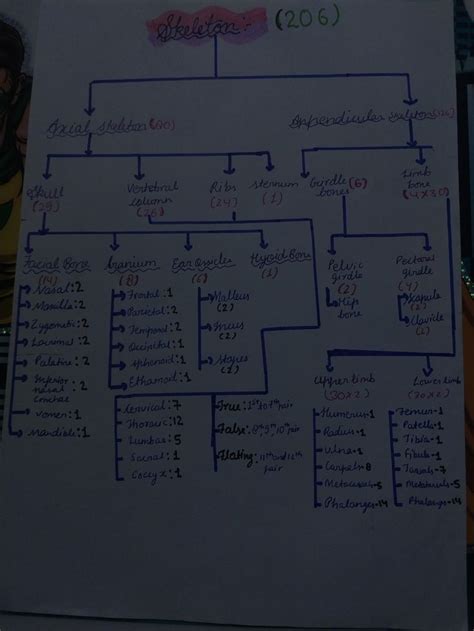 Skeleton:- (206)
Axial skeleton (80)
Appendicular skeleton (126)
Skull
(29)
Vertebral
column
(26)
Ribs
(24)
Sternum
(1)
Girdle (6)
bones
Limb
bone
(4x30)
Facial Bone
(14)
Nasal: 2
Maxilla: 2
Zygomatic: 2
Lacrimal: 2
Palatine: 2
Inferior: 2
nasal
conchae
Vomer: 1
Mandible: 1
Cranium
(8)
Frontal: 1
Parietal: 2
Temporal: 2
Occipital: 1
Sphenoid: 1
Ethamoid: 1
Ear Ossicles
(6)
Malleus
(2)
Incus
(2)
Stapes
(2)
Hyoid Bone
(1)
Pelvic
girdle
(2)
Hip
bone
Pectoral
girdle
(4)
Clavicle
Cervical: 7
Thoracic: 12
Lumbar: 5
Sacral: 1
Coccyx: 1
True: 1st to 7th pair
False: 8th, 9th, 10th
pair
Floating: 11th and 12th
pair
Upper limb
(30x2)
Humerus-1
Radius-1
Ulna-1
Carpals-8
Metacarpals-5
Phalanges-14
Lower limb
(30x2)
Femur-1
Patella-1
Tibia-1
Fibula-1
Tarsals-7
Metatarsals-5
Phalanges-14